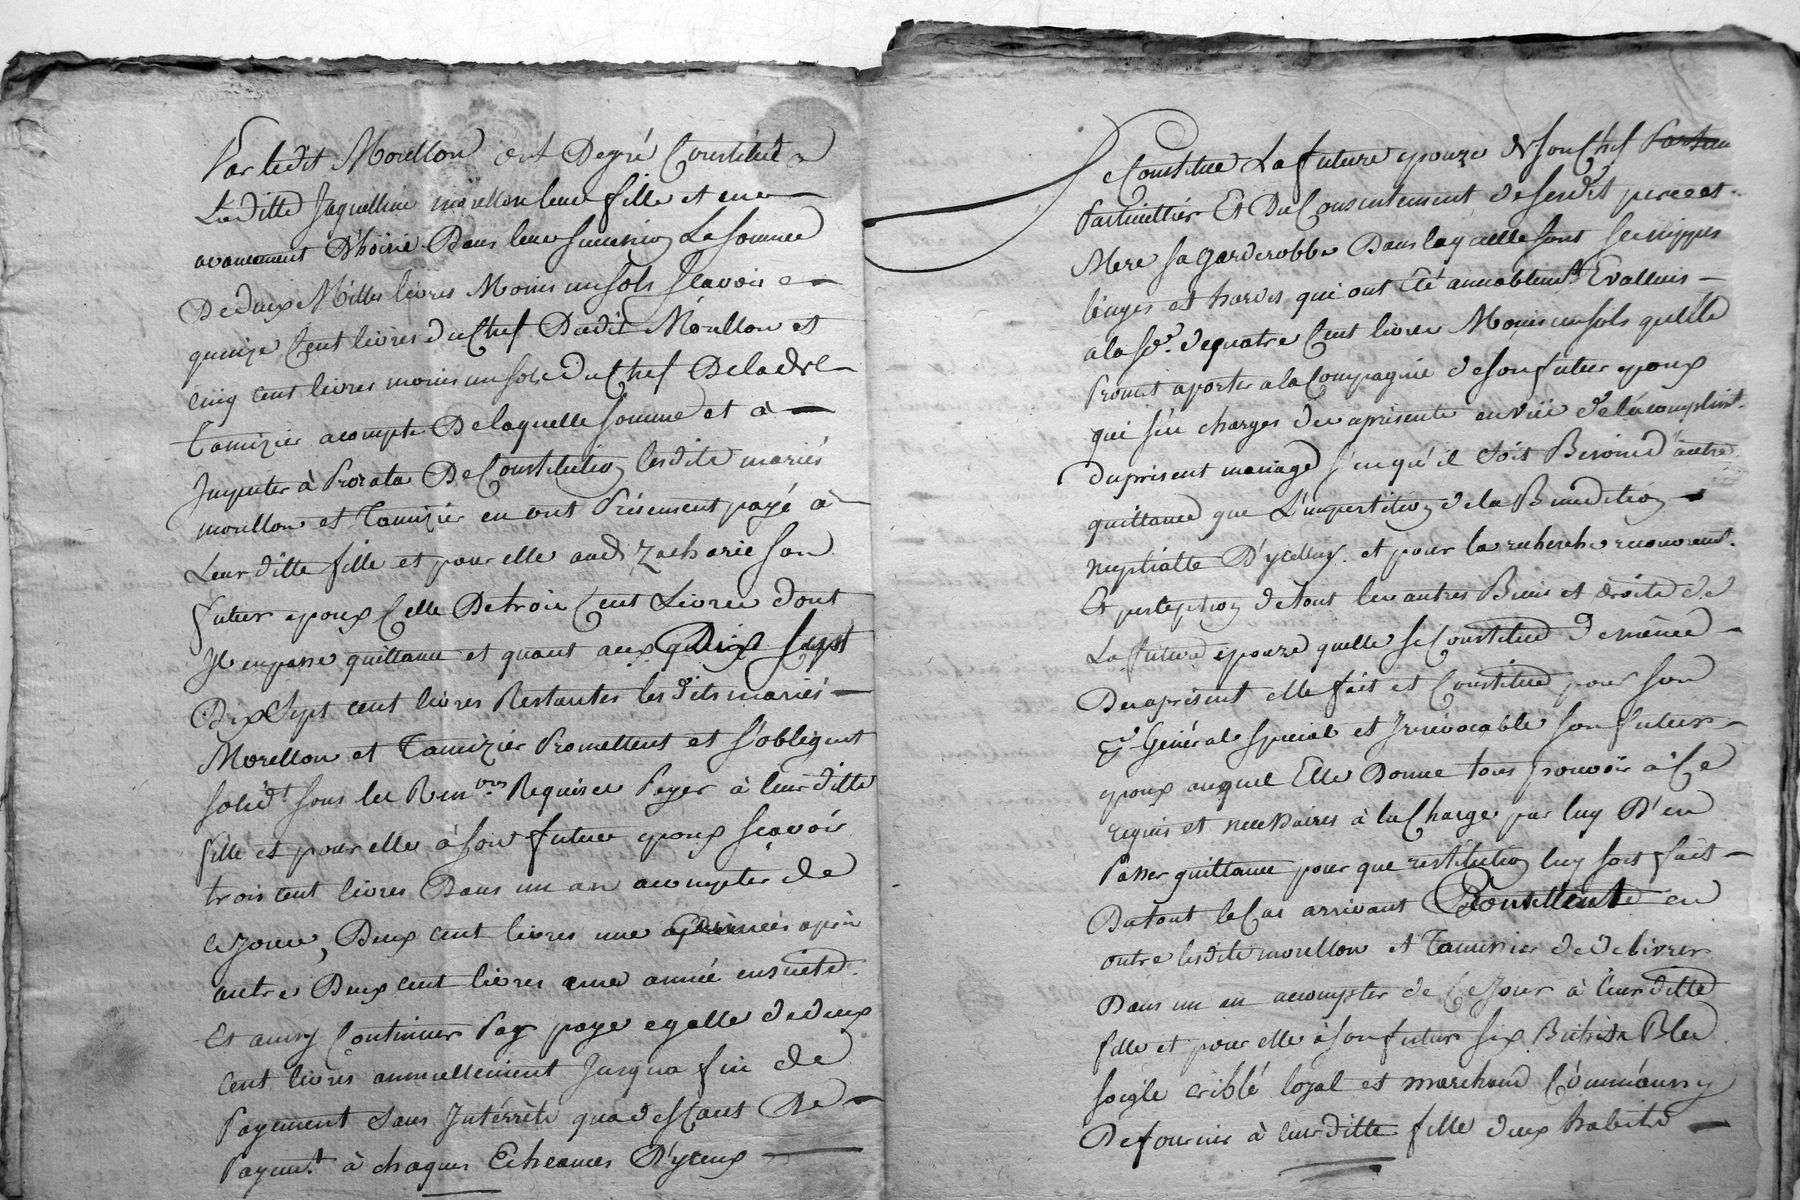 Par ledit Morellon ont Degré Constitué a
Laditte Jaquelline morellon leur fille et en
avancement D'hoirie Dans leur succession La somme
De deux Milles livres Moins un sols Scavoir
quinze Cent livres du Chef Dudit Morellon et
cinq cent livres moins un sols du Chef De ladte
Tamizier acompte De laquelle somme et à
Imputer à Prorata De Constitution lesdits mariés
morellon et Tamizier en ont Présement payé à
Leur ditte fille et pour elle aud Zacharie son
futur epoux Celle De trois Cent Livres dont
Il en passe quittance et quant aux Dix Sept
Dix Sept cent livres Restantes lesdits mariés
Morellon et Tamizier Promettent et s'obligent
solidt sous les Ren.ons Requises Payer à leur ditte
fille et pour elle à son futur epoux scavoir
trois cent livres Dans un an acompter de
ce Jour, Deux cent livres une années après
autre Deux cent livres une année ensuite
Et ainsy Continuer Pay paye egalle de deux
cent livres annuellement Jusqua fin de
Payement sans Intérrêts qua deffaut De
Payemt à chaques Echeances D'yceux
Se Constitue La future epouze de son Chef
Particullier Et Du Consentement de sesdts pere et
Mere sa garderobbe Dans laquelle sont ses nippes
linges et hardes qui ont Eté amiablemt Evallués
a la se. de quatre Cent livres Moins un sols quelle
Promet aporter a la Compagnie de son futur epoux
qui s'en charges des aprésente en vüe de l'acomplist.
du présent mariage sans qu'il soit Besoin d'autre
quittance que L'impartition de la Benediction
nuptialle D'ycelluy. et pour la recherche recouvremt.
Et perception de tout les autres Biens et droits de
La future epouze quelle se Constitue de même
Des aprésent elle fait et Constitue pour son
Général spécial et Irrévocable son futur
epoux auquel Elle Donne tous pouvoir à Ce
requis et necessaires à la Charge par luy D'en
Passer quittance pour que restitution luy soit fait
Du tout le Cas arrivant Promettent en
outre lesdits morellon et Tamizier de delivrer
Dans un an acompter de Ce Jour à leur ditte
fille et pour elle à son futur six Bichets Bled
soigle criblé loyal et marchand Comm'aussy
De fournir à leur ditte fille deux habits